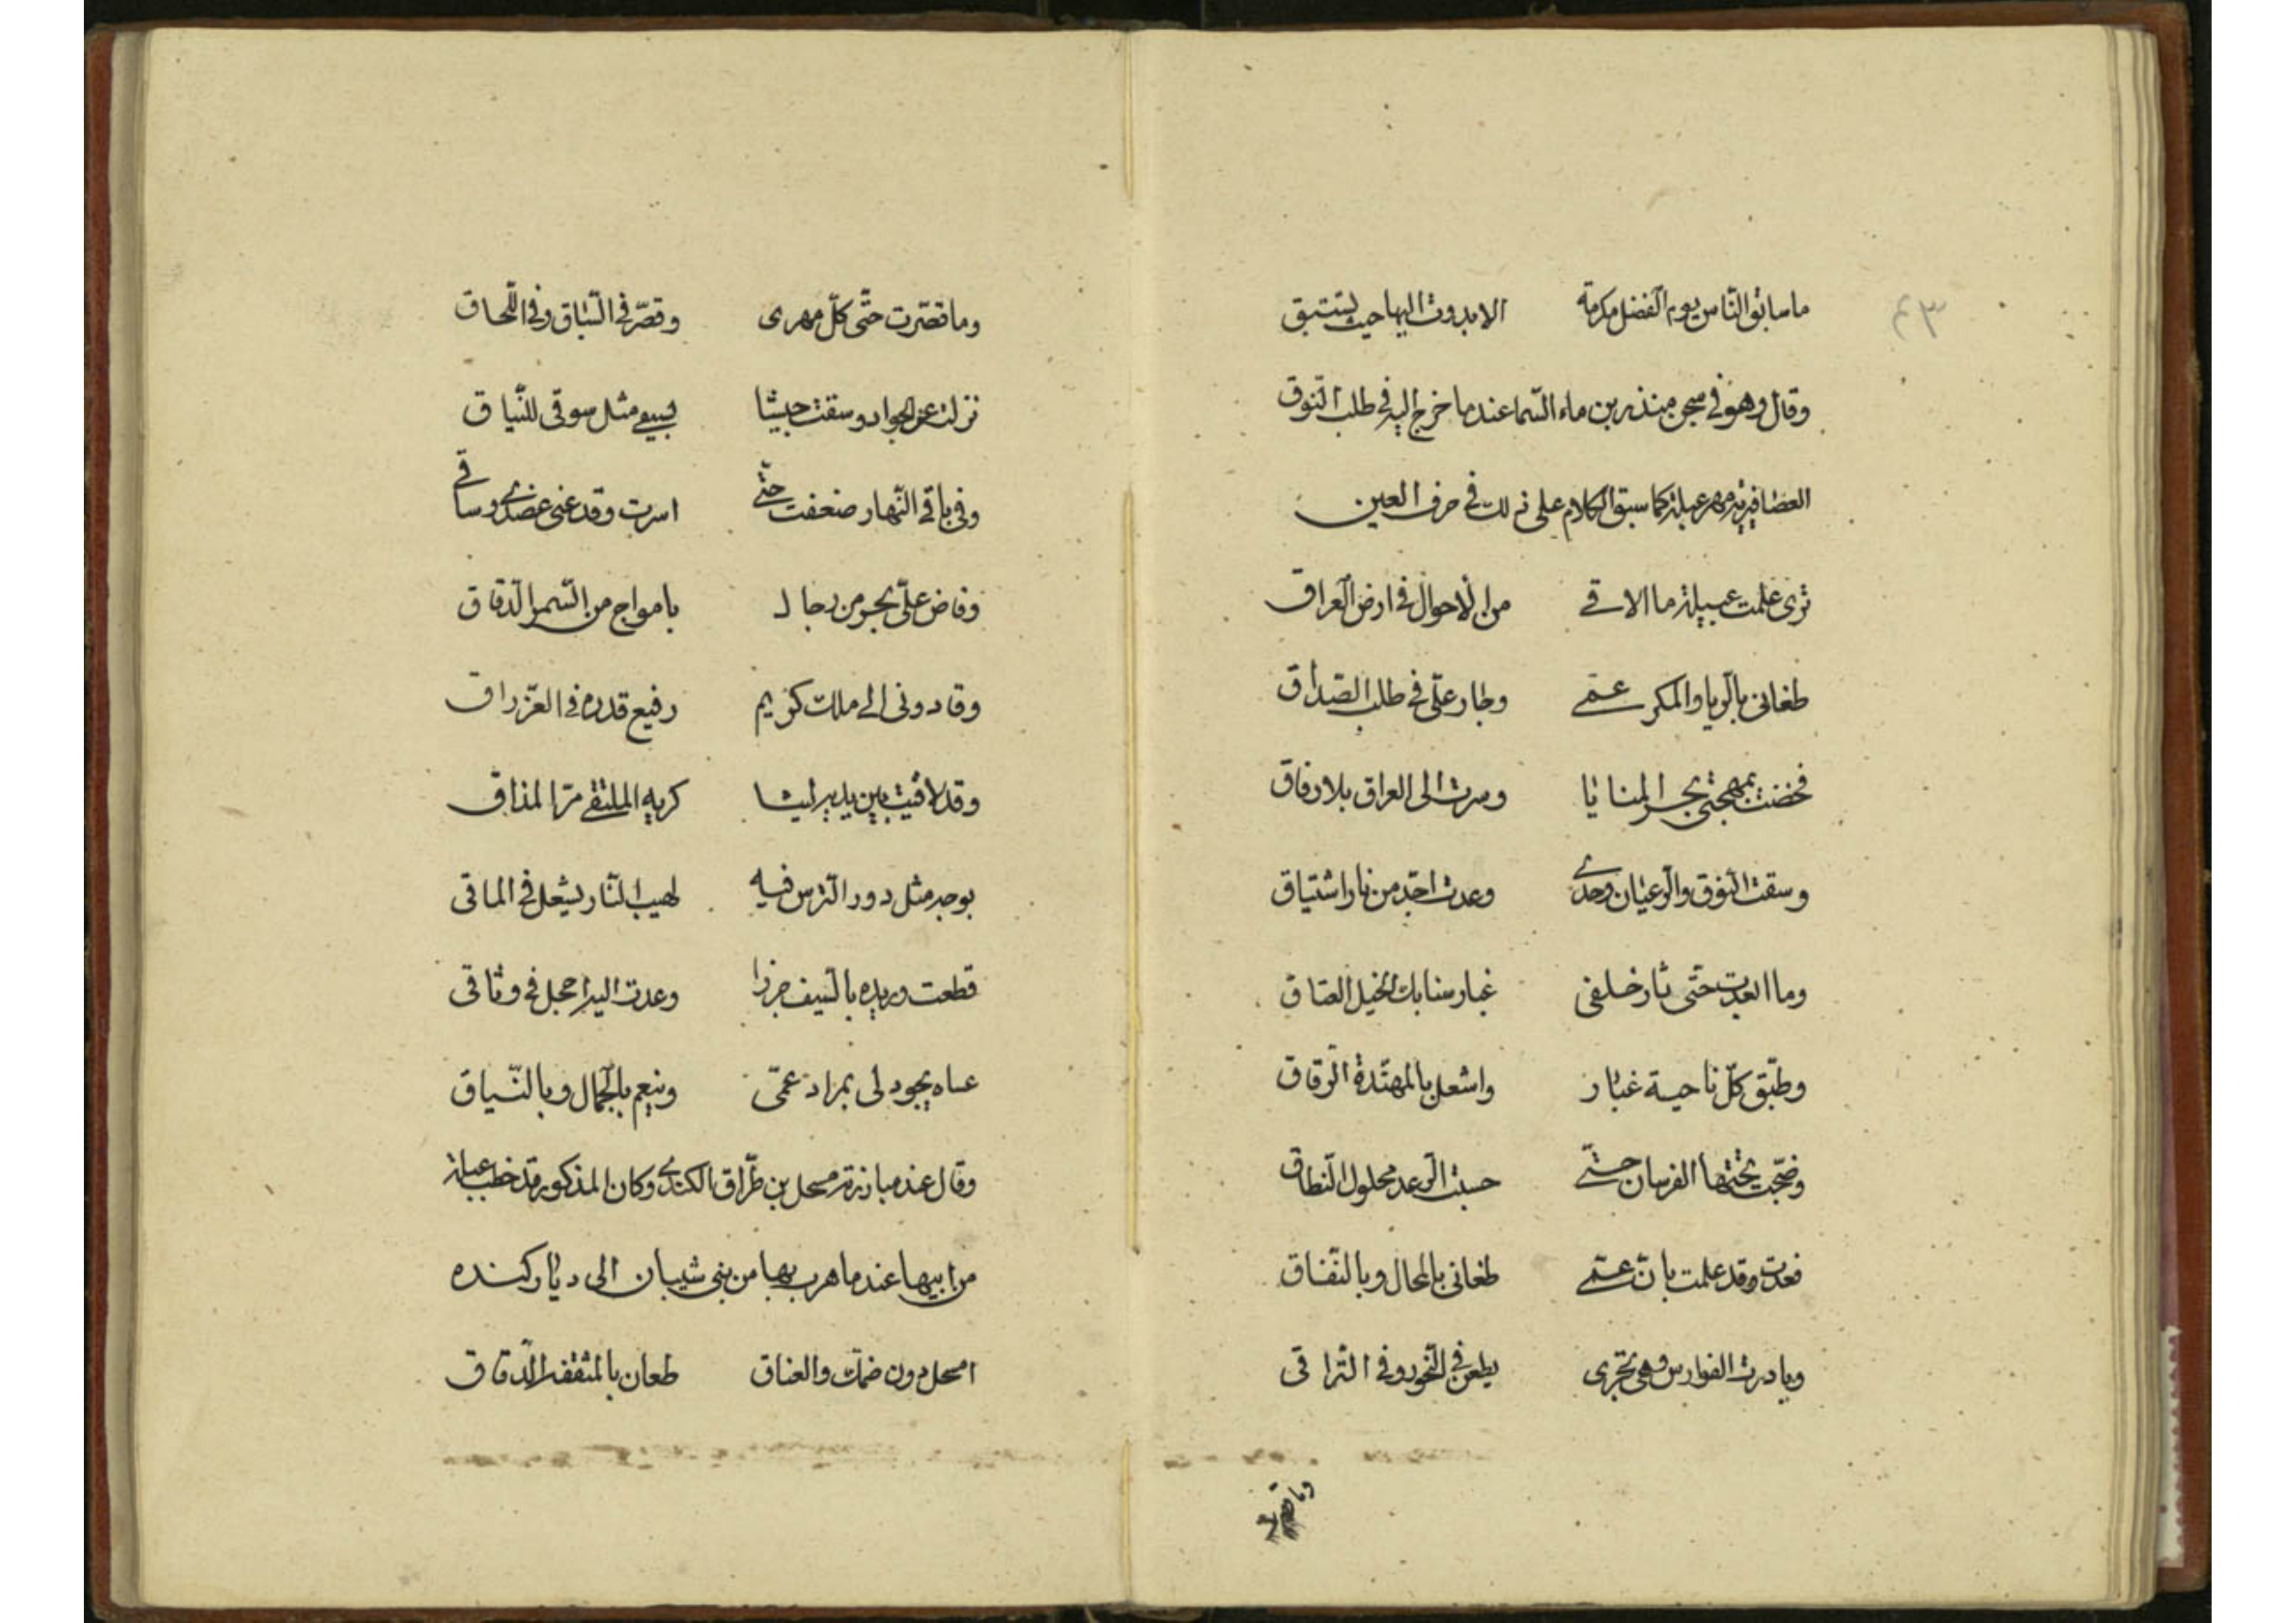 ٤٣
ما سابق النّاس يوم الفضل مكرمة الا بدوت اليها حيث تستبق
وقال وهو في سجن منذر بن ماء السّما عندما خرج اليه في طلب النّوق
العصافيريّة مهر عبلة كما سبق الكلام على ذلك في حرف العين
ترى علمت عبيلة ما الاقي من الاحوال في ارض العراق
طغاني بالريا والمكر عمّي وجار علّي في طلب الصّداق
فخضت بمهجتي بحر المنايا وسرت الى العراق بلا رفاق
وسقت النّوق والرعيان وحدي وعدت اجدّ من نار اشتياق
وما ابعدت حتّى ثار خلفي غبار سنابك الخيل العتاق
وطبّق كلّ ناحية غبار واشعل بالمهنّدة الرّقاق
وضجّت تحتها الفرسان حتّى حسبت الرّعد محلول النّطاق
فعدت وقد علمت بانّ عمّي طغاني بالمحال وبالنّفاق
وبادرت الفوارس وهي تجري بطعن في النّحور وفي التّراقي
وما قصّرت
وما قصّرت حتّى كلّ مهري وقصّر في السّباق وفي اللّحاق
نزلت عن الجواد وسقت جيشا بسيفي مثل سوقي للنّياق
وفي باقي النّهار ضعفت حتّى اسرت وقد عنى عضدي وساقي
وفاض علّي بحر من رجال بامواج من السّمر الدّقاق
وقادوني الى ملك كريم رفيع قدره في العزّ راق
وقد لاقيت بين يديه ليثا كريه الملتقى مرّ المذاق
بوجه مثل دور التّرس فيه لهيب النّار يشعل في الماقي
قطعت وريده بالسّيف جزرا وعدت اليه احجل في وثاقي
عساه يجود لي بمراد عمّي وينعم بالجمال وبالنّياق
وقال عند مبارزته مسحل بن طرّاق الكندي وكان المذكور قد خطب عبلة
من ابيها عندما هرب بها من بني شيبان الى ديار كنده
امسحل دون ضمّك والعناق طعان بالمثقفة الدّقاق